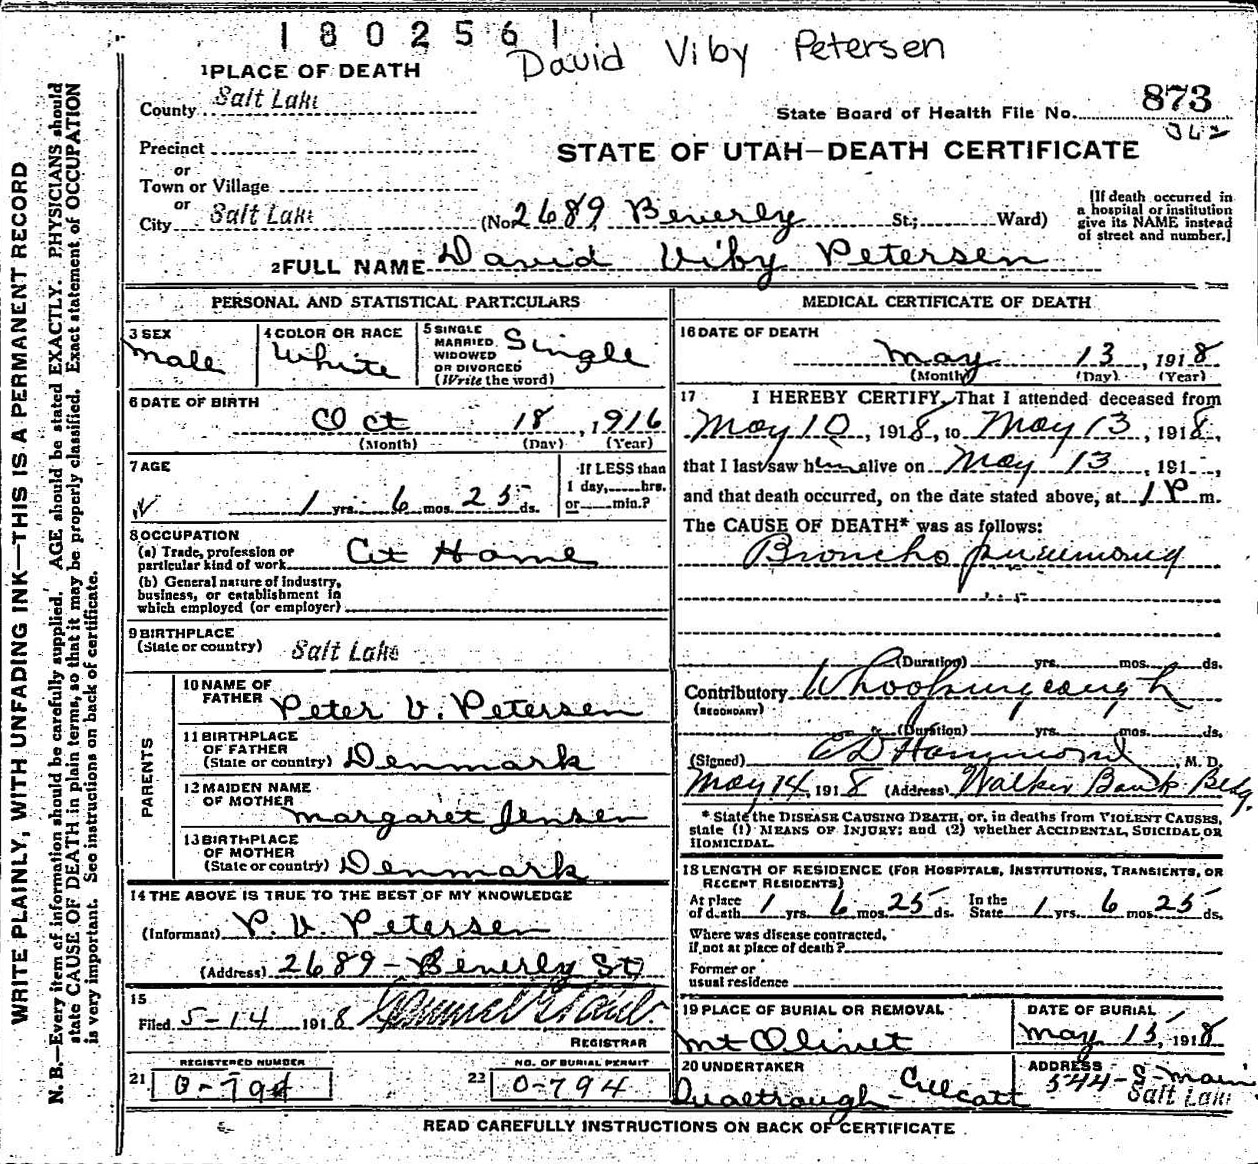 1802561
David Viby Petersen
1 PLACE OF DEATH
County Salt Lake
State Board of Health File No. 873
362
Precinct
or
Town or Village
or
City Salt Lake
STATE OF UTAH—DEATH CERTIFICATE
(No 2689 Beverly St; Ward)
[If death occurred in
a hospital or institution
give its NAME instead
of street and number.]
2 FULL NAME David Viby Petersen
PERSONAL AND STATISTICAL PARTICULARS
3 SEX
Male
4 COLOR OR RACE
White
5 SINGLE
MARRIED
WIDOWED
OR DIVORCED
(Write the word)
Single
6 DATE OF BIRTH
Oct 18, 1916
(Month) (Day) (Year)
7 AGE
1 yrs. 6 mos. 25 ds.
If LESS than
1 day, hrs.
or min.?
8 OCCUPATION
(a) Trade, profession or
particular kind of work At Home
(b) General nature of industry,
business, or establishment in
which employed (or employer)
9 BIRTHPLACE
(State or country) Salt Lake
PARENTS
10 NAME OF
FATHER Peter V. Petersen
11 BIRTHPLACE
OF FATHER
(State or country) Denmark
12 MAIDEN NAME
OF MOTHER
Margaret Jensen
13 BIRTHPLACE
OF MOTHER
(State or country) Denmark
14 THE ABOVE IS TRUE TO THE BEST OF MY KNOWLEDGE
(Informant) P. V. Petersen
(Address) 2689 - Beverly St
15
Filed 5-14 1918
REGISTRAR
REGISTERED NUMBER
21 0-794
NO. OF BURIAL PERMIT
22 0-794
MEDICAL CERTIFICATE OF DEATH
16 DATE OF DEATH
May 13, 1918
(Month) (Day) (Year)
17 I HEREBY CERTIFY, That I attended deceased from
May 10, 1918, to May 13, 1918,
that I last saw him alive on May 13, 191 ,
and that death occurred, on the date stated above, at 1 P m.
The CAUSE OF DEATH* was as follows:
Broncho pneumonia
(Duration) yrs. mos. ds.
Contributory Whooping cough
(SECONDARY)
(Duration) yrs. mos. ds.
(Signed) Hammond, M. D.
May 14, 1918 (Address) Walker Bank Bldg
* State the DISEASE CAUSING DEATH, or, in deaths from VIOLENT CAUSES,
state (1) MEANS OF INJURY; and (2) whether ACCIDENTAL, SUICIDAL OR
HOMICIDAL.
18 LENGTH OF RESIDENCE (FOR HOSPITALS, INSTITUTIONS, TRANSIENTS, OR
RECENT RESIDENTS)
At place
of death 1 yrs. 6 mos. 25 ds. In the
State 1 yrs. 6 mos. 25 ds.
Where was disease contracted,
if not at place of death?
Former or
usual residence
19 PLACE OF BURIAL OR REMOVAL
Mt Olivet
DATE OF BURIAL
May 15, 1918
20 UNDERTAKER
ADDRESS
544 So Main
Salt Lake
READ CAREFULLY INSTRUCTIONS ON BACK OF CERTIFICATE
WRITE PLAINLY, WITH UNFADING INK—THIS IS A PERMANENT RECORD
N. B.—Every item of information should be carefully supplied. AGE should be stated EXACTLY. PHYSICIANS should
state CAUSE OF DEATH in plain terms, so that it may be properly classified. Exact statement of OCCUPATION
is very important. See instructions on back of certificate.